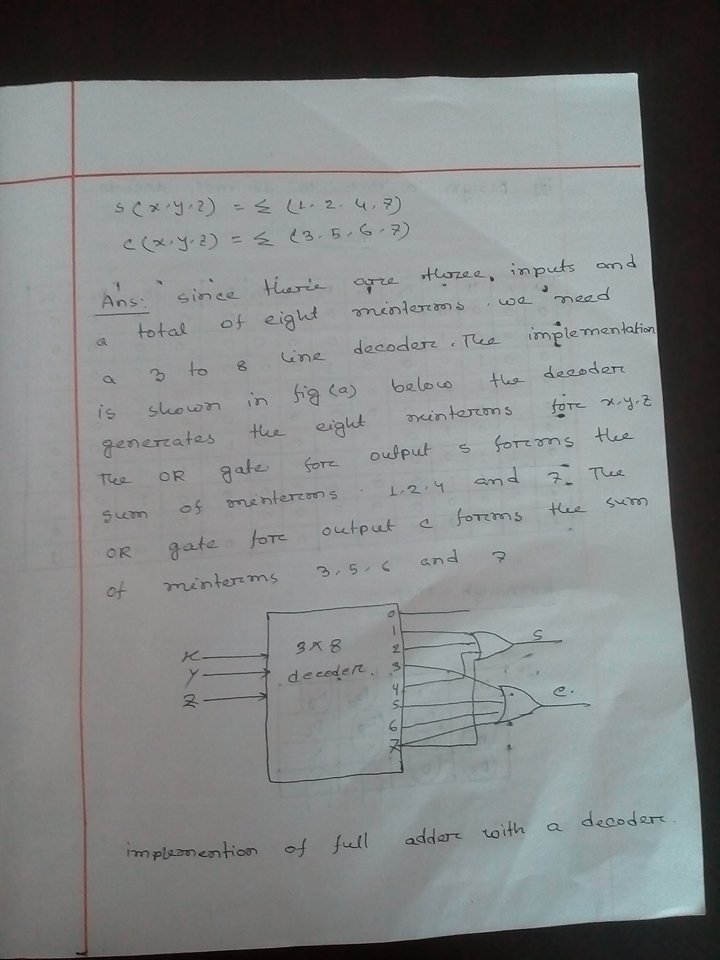 s(x,y,z) = Σ (1, 2, 4, 7)
c(x,y,z) = Σ (3, 5, 6, 7)
Ans: since there are three inputs and
a total of eight minterms. we need
a 3 to 8 line decoder. The implementation
is shown in fig (a) below the decoder
generates the eight minterms for x,y,z
The OR gate for output s forms the
sum of minterms 1,2,4 and 7. The
OR gate for output c forms the sum
of minterms 3,5,6 and 7
3x8
decoder.
X
Y
Z
0
1
2
3
4
5
6
7
S
C.
implemention of full adder with a decoder.